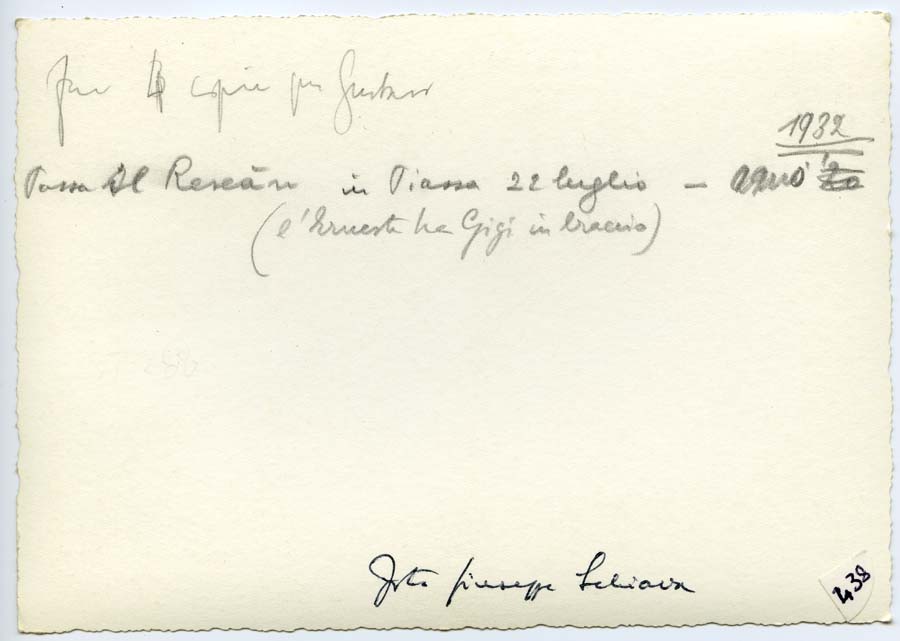 fare 4 copie per Gustavo
1932
Passa il Rescàn in Piassa 22 luglio - anno
(l'Ernesta ha Gigi in braccio)
Foto Giuseppe Schiava
438